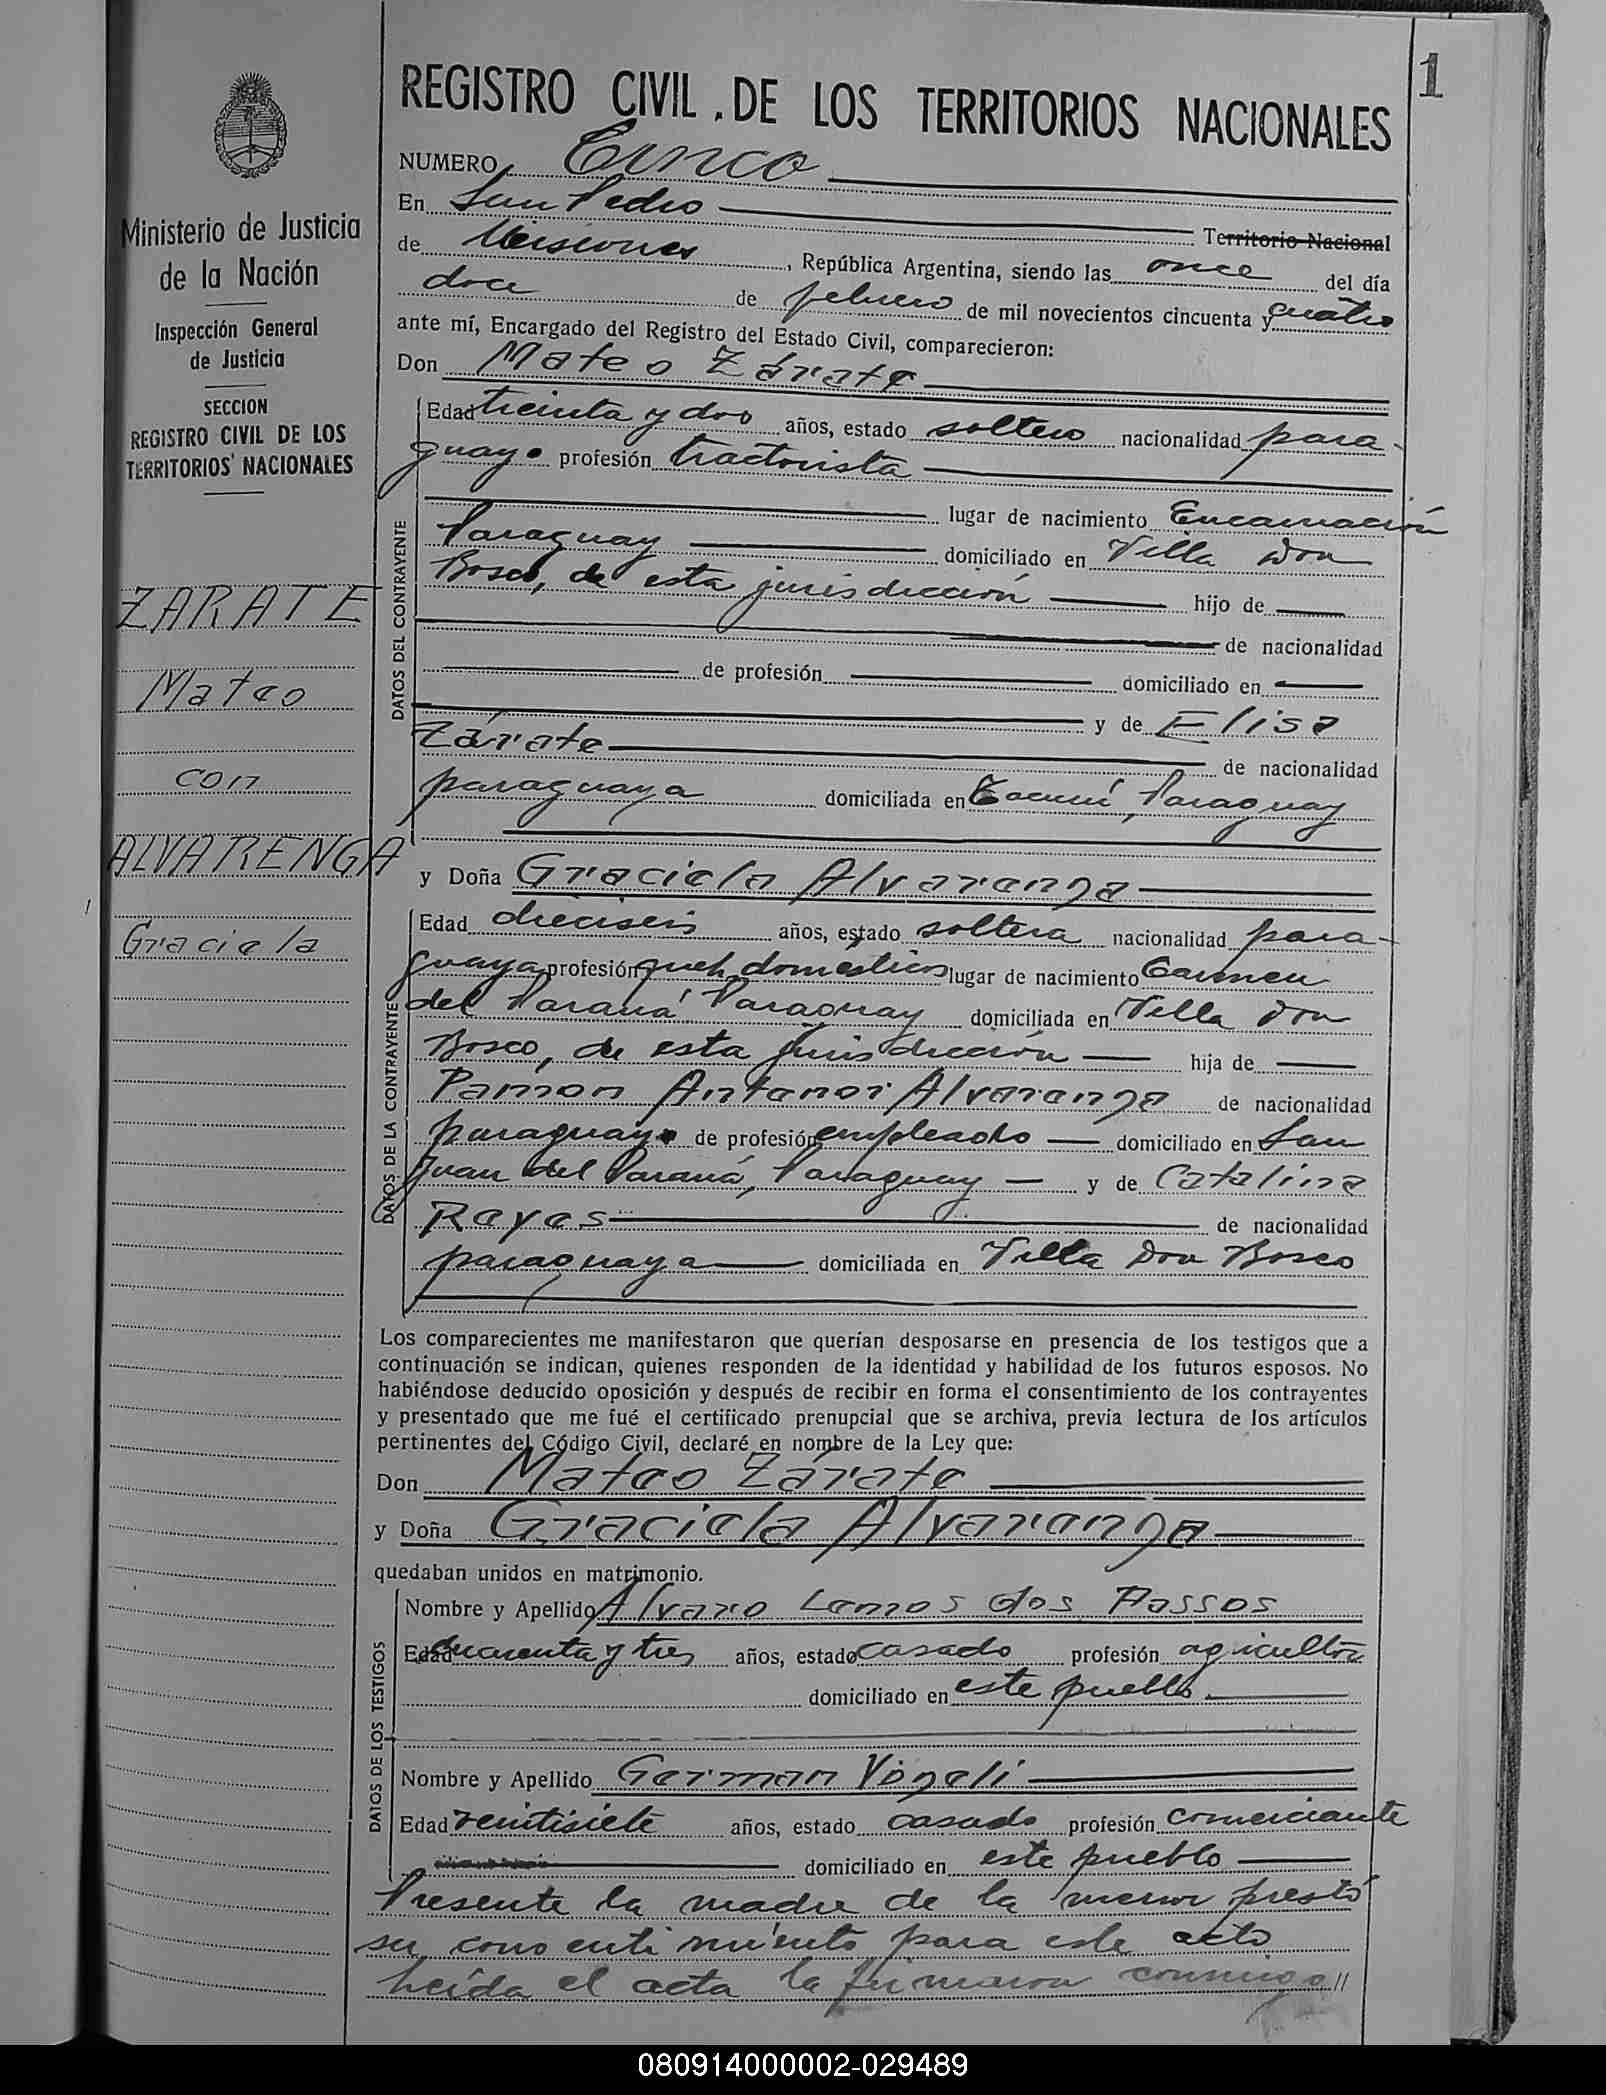 1
REGISTRO CIVIL DE LOS TERRITORIOS NACIONALES
NUMERO Cinco
En San Pedro Territorio Nacional
de Misiones, República Argentina, siendo las once del día
doce de febrero de mil novecientos cincuenta y cuatro
ante mí, Encargado del Registro del Estado Civil, comparecieron:
Don Mateo Zárate
Edad treinta y dos años, estado soltero nacionalidad para-
guayo profesión tractorista
lugar de nacimiento Encarnación
Paraguay domiciliado en Villa Don
Bosco, de esta jurisdicción hijo de
de nacionalidad
de profesión domiciliado en
y de Elisa
Zárate de nacionalidad
paraguaya domiciliada en Paraguay
y Doña Graciela Alvarenga
Edad dieciseis años, estado soltera nacionalidad para-
guaya profesión queh. domésticos lugar de nacimiento Carmen
del Paraná Paraguay domiciliada en Villa Don
Bosco, de esta jurisdicción hija de
Ramon Antenor Alvarenga de nacionalidad
paraguayo de profesión empleado domiciliado en San
Juan del Paraná, Paraguay y de Catalina
Rayas de nacionalidad
paraguaya domiciliada en Villa Don Bosco
Los comparecientes me manifestaron que querían desposarse en presencia de los testigos que a
continuación se indican, quienes responden de la identidad y habilidad de los futuros esposos. No
habiéndose deducido oposición y después de recibir en forma el consentimiento de los contrayentes
y presentado que me fué el certificado prenupcial que se archiva, previa lectura de los artículos
pertinentes del Código Civil, declaré en nombre de la Ley que:
Don Mateo Zárate
y Doña Graciela Alvarenga
quedaban unidos en matrimonio.
Nombre y Apellido Alvaro Lemos dos Passos
Edad cuarenta y tres años, estado casado profesión agricultor
domiciliado en este pueblo
Nombre y Apellido German Vögeli
Edad veintisiete años, estado casado profesión comerciante
domiciliado en este pueblo
Presente la madre de la menor prestó
su consentimiento para este acto
Leída el acta la firmaron conmigo //
Ministerio de Justicia
de la Nación
Inspección General
de Justicia
SECCION
REGISTRO CIVIL DE LOS
TERRITORIOS NACIONALES
ZARATE
Mateo
con
ALVARENGA
Graciela
DATOS DEL CONTRAYENTE
DATOS DE LA CONTRAYENTE
DATOS DE LOS TESTIGOS
080914000002-029489